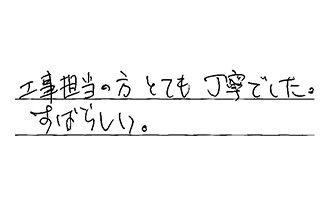 工事担当の方とても丁寧でした。
すばらしい。